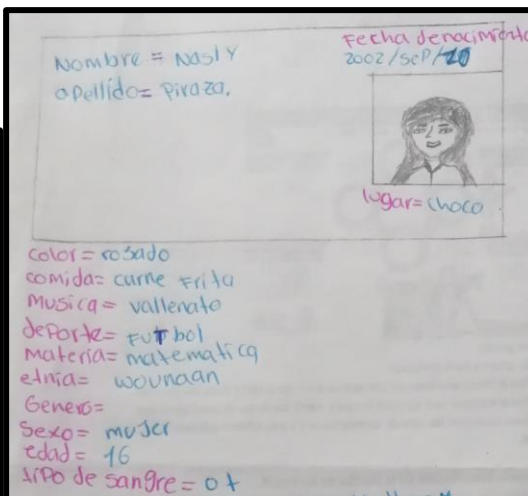 Nombre = Nasly
apellido= Piraza.
Fecha denacimiento
2002/SeP/20
lugar= choco
color= rosado
comida= carne Frita
Musica= vallenato
dePorte= FUTbol
Materia= matematica
etnia= wounaan
Genero=
Sexo= mujer
edad= 16
tiPo de sangre= o+